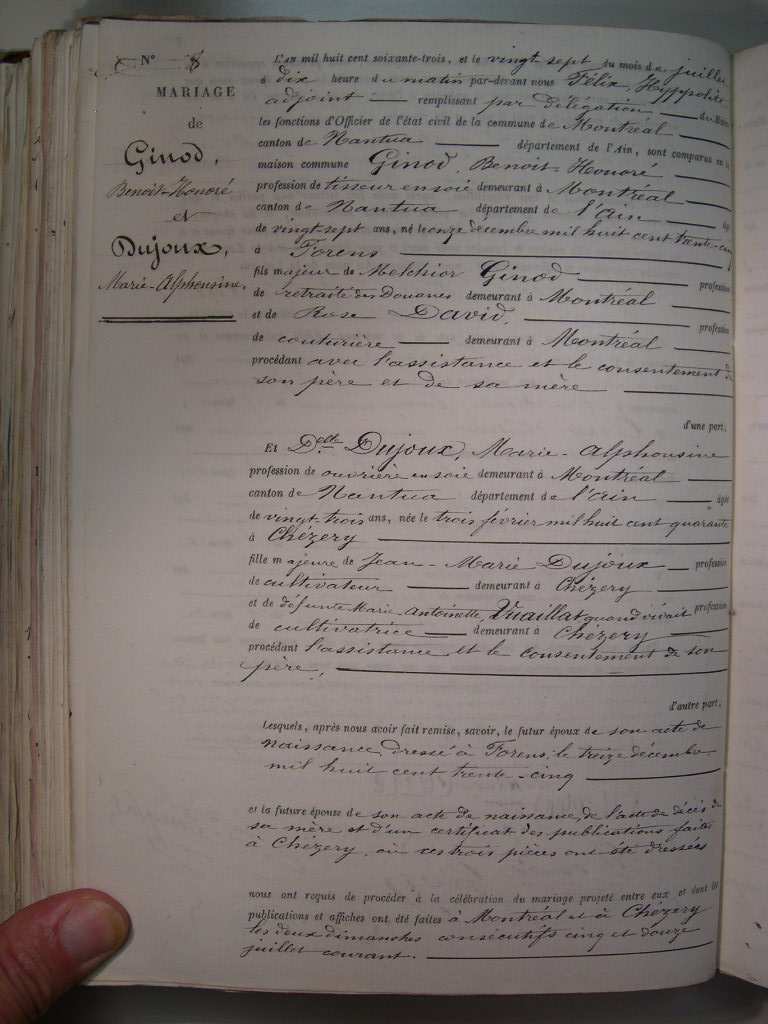 N° 8
MARIAGE
de
Ginod,
Benoit-Honoré
et
Dujoux,
Marie-Alphonsine,
L'AN mil huit cent soixante-trois, et le vingt sept du mois de juillet
à dix heure du matin par-devant nous Félix, Hyppolite
adjoint remplissant par Délégation du Maire
les fonctions d'Officier de l'état civil de la commune de Montréal
canton de Nantua département de l'Ain, sont comparus en la
maison commune Ginod, Benoit-Honoré
profession de tisseur en soie demeurant à Montréal
canton de Nantua département de l'Ain âgé
de vingt sept ans, né le onze décembre mil huit cent trente-cinq
à Forens
fils majeur de Melchior Ginod profession
de retraité des Douanes demeurant à Montréal
et de Rose David, profession
de couturière demeurant à Montréal
procédant avec l'assistance et le consentement de
son père et de sa mère
d'une part,
Et Delle Dujoux, Marie-Alphonsine
profession de ouvrière en soie demeurant à Montréal
canton de Nantua département de l'Ain âgée
de vingt-trois ans, née le trois février mil huit cent quarante
à Chézery
fille majeure de Jean-Marie Dujoux profession
de cultivateur demeurant à Chézery
et de défunte Marie-Antoinette, Vuaillat quand vivait profession
de cultivatrice demeurant à Chézery
procédant l'assistance et le consentement de son
père,
d'autre part,
Lesquels, après nous avoir fait remise, savoir, le futur époux de son acte de
naissance, dressé à Forens, le treize décembre
mil huit cent trente-cinq
et la future épouse de son acte de naissance, de l'acte de décès de
sa mère et d'un certificat des publications faites
à Chézery, où ces trois pièces ont été dressées
nous ont requis de procéder à la célébration du mariage projeté entre eux et dont les
publications et affiches ont été faites à Montréal et à Chézery
les deux dimanches consécutifs cinq et douze
juillet courant.